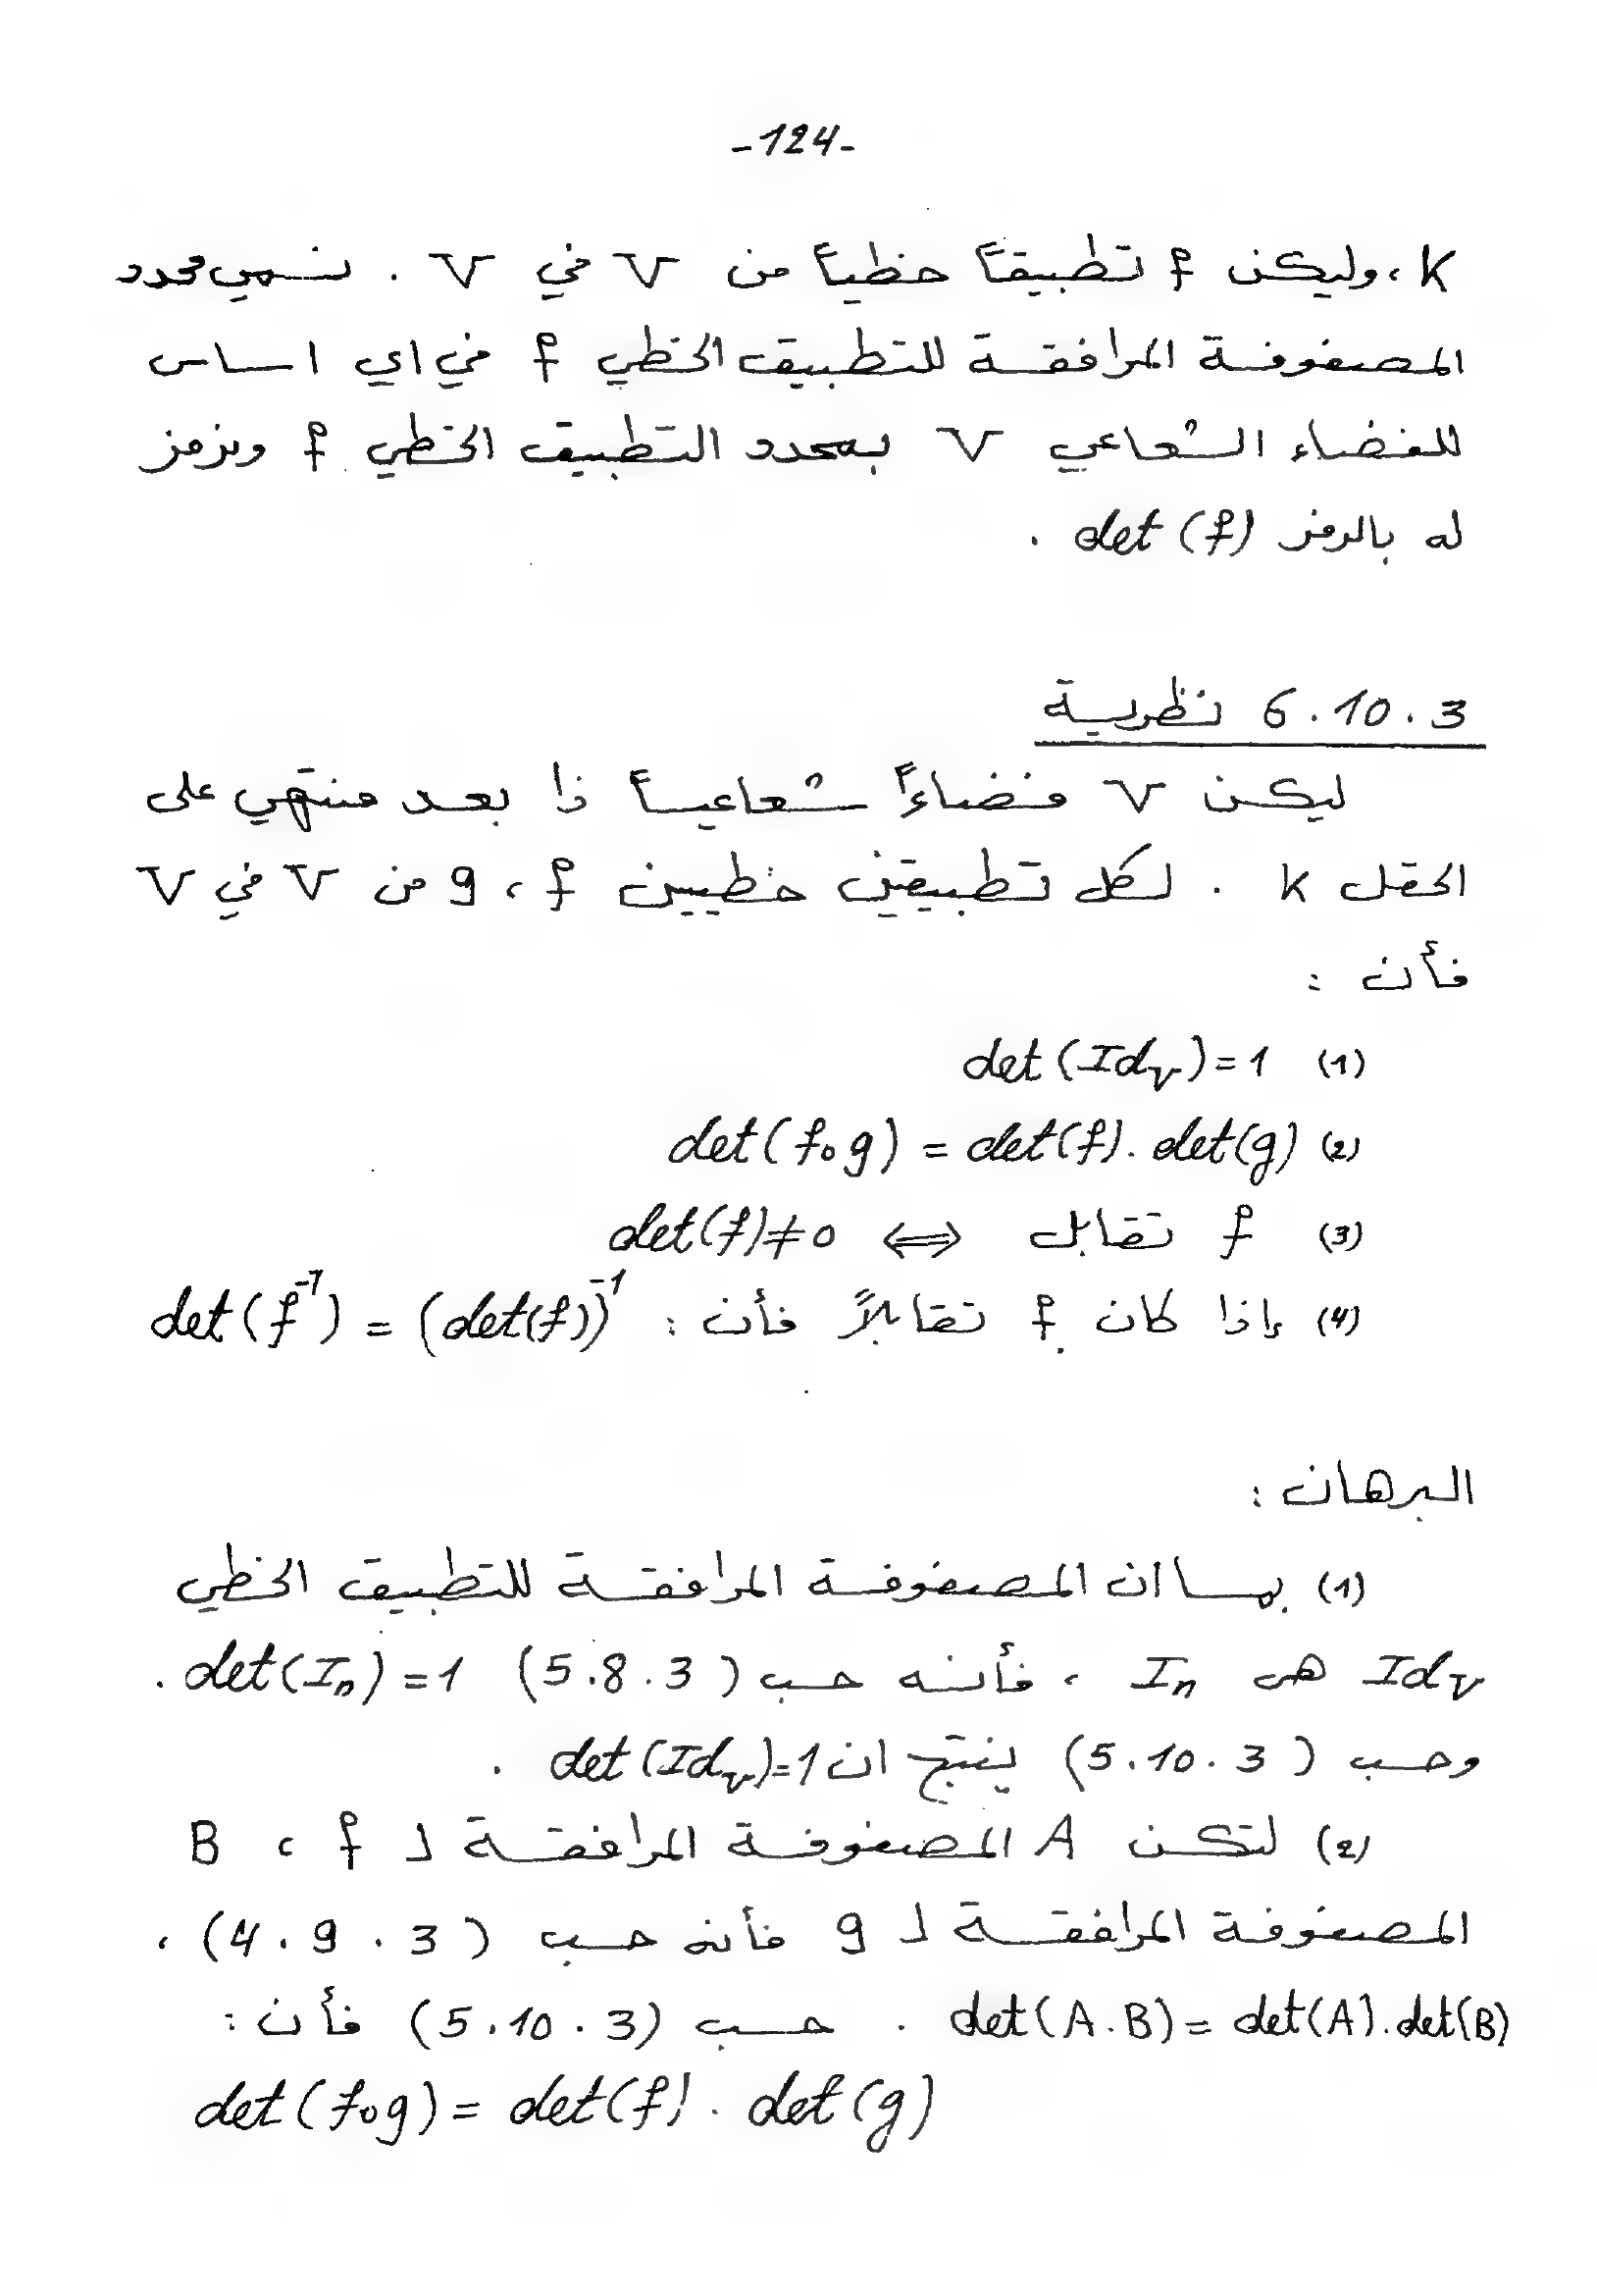 -124-
K ، وليكن f تطبيقاً خطياً من V في V . نسمي محدد
المصفوفة المرافقة للتطبيق الخطي f في اي اساس
للفضاء الشعاعي V بمحدد التطبيق الخطي f ونرمز
له بالرمز det (f) .
6.10.3 نظرية
ليكن V فضاءاً شعاعياً ذا بعد منتهي على
الحقل K . لكل تطبيقين خطيين f ، g من V في V
فأن :
(1) det (Id_V) = 1
(2) det (f∘g) = det(f) . det(g)
(3) f تقابل ⟺ det(f) ≠ 0
(4) إذا كان f تقابلاً فأن : det (f⁻¹) = (det(f))⁻¹
البرهان :
(1) بما ان المصفوفة المرافقة للتطبيق الخطي
Id_V هي I_n ، فأنه حسب (5.8.3) det (I_n) = 1 .
وحسب (5.10.3) ينتج ان det (Id_V) = 1 .
(2) لتكن A المصفوفة المرافقة لـ f ، B
المصفوفة المرافقة لـ g فأنه حسب (4.9.3) ،
det (A.B) = det(A).det(B) . حسب (5.10.3) فأن :
det (f∘g) = det(f) . det (g)